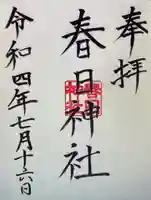 奉拝
春日神社
令和四年七月十六日